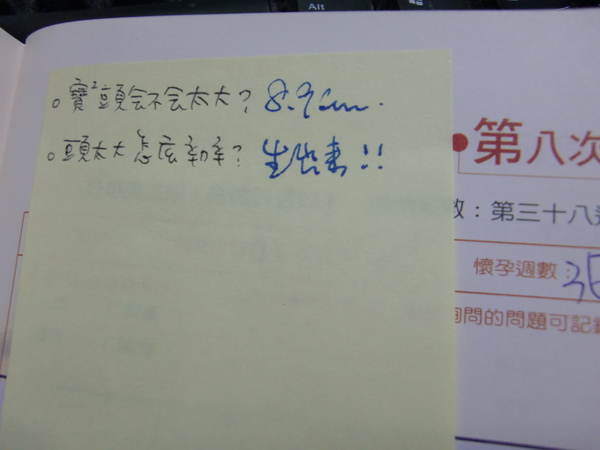 Alt
。寶²頭会不会太大? 8.9cm.
。頭太大怎庅辦? 生出來!!
第八次
：第三十八
懷孕週數：36
問的問題可記